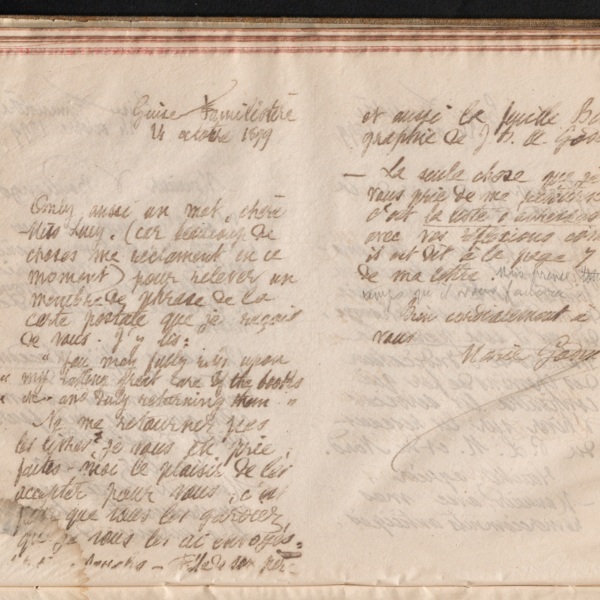 Guise Familistère
14 octobre 1899
Only aussi un mot, chère
Miss Lucy. (car beaucoup de
choses me réclament en ce
moment) pour relever un
membre de phrase de la
carte postale que je reçois
de vous. J'y lis:
"you may fully rely upon
my taking great care of the books
and duly returning them"
Ne me retournez pas
les livres, je vous en prie,
faites-moi le plaisir de les
accepter pour vous, c'est
pour que vous les gardiez
que je vous les ai envoyés.
et aussi la feuille
graphie de J. B. A. God
— La seule chose que je
vous prie de me
c'est la liste d'adresses
avec vos
il est dit à la page 7
de ma lettre.
Bien cordialement à
vous
Marie Godin